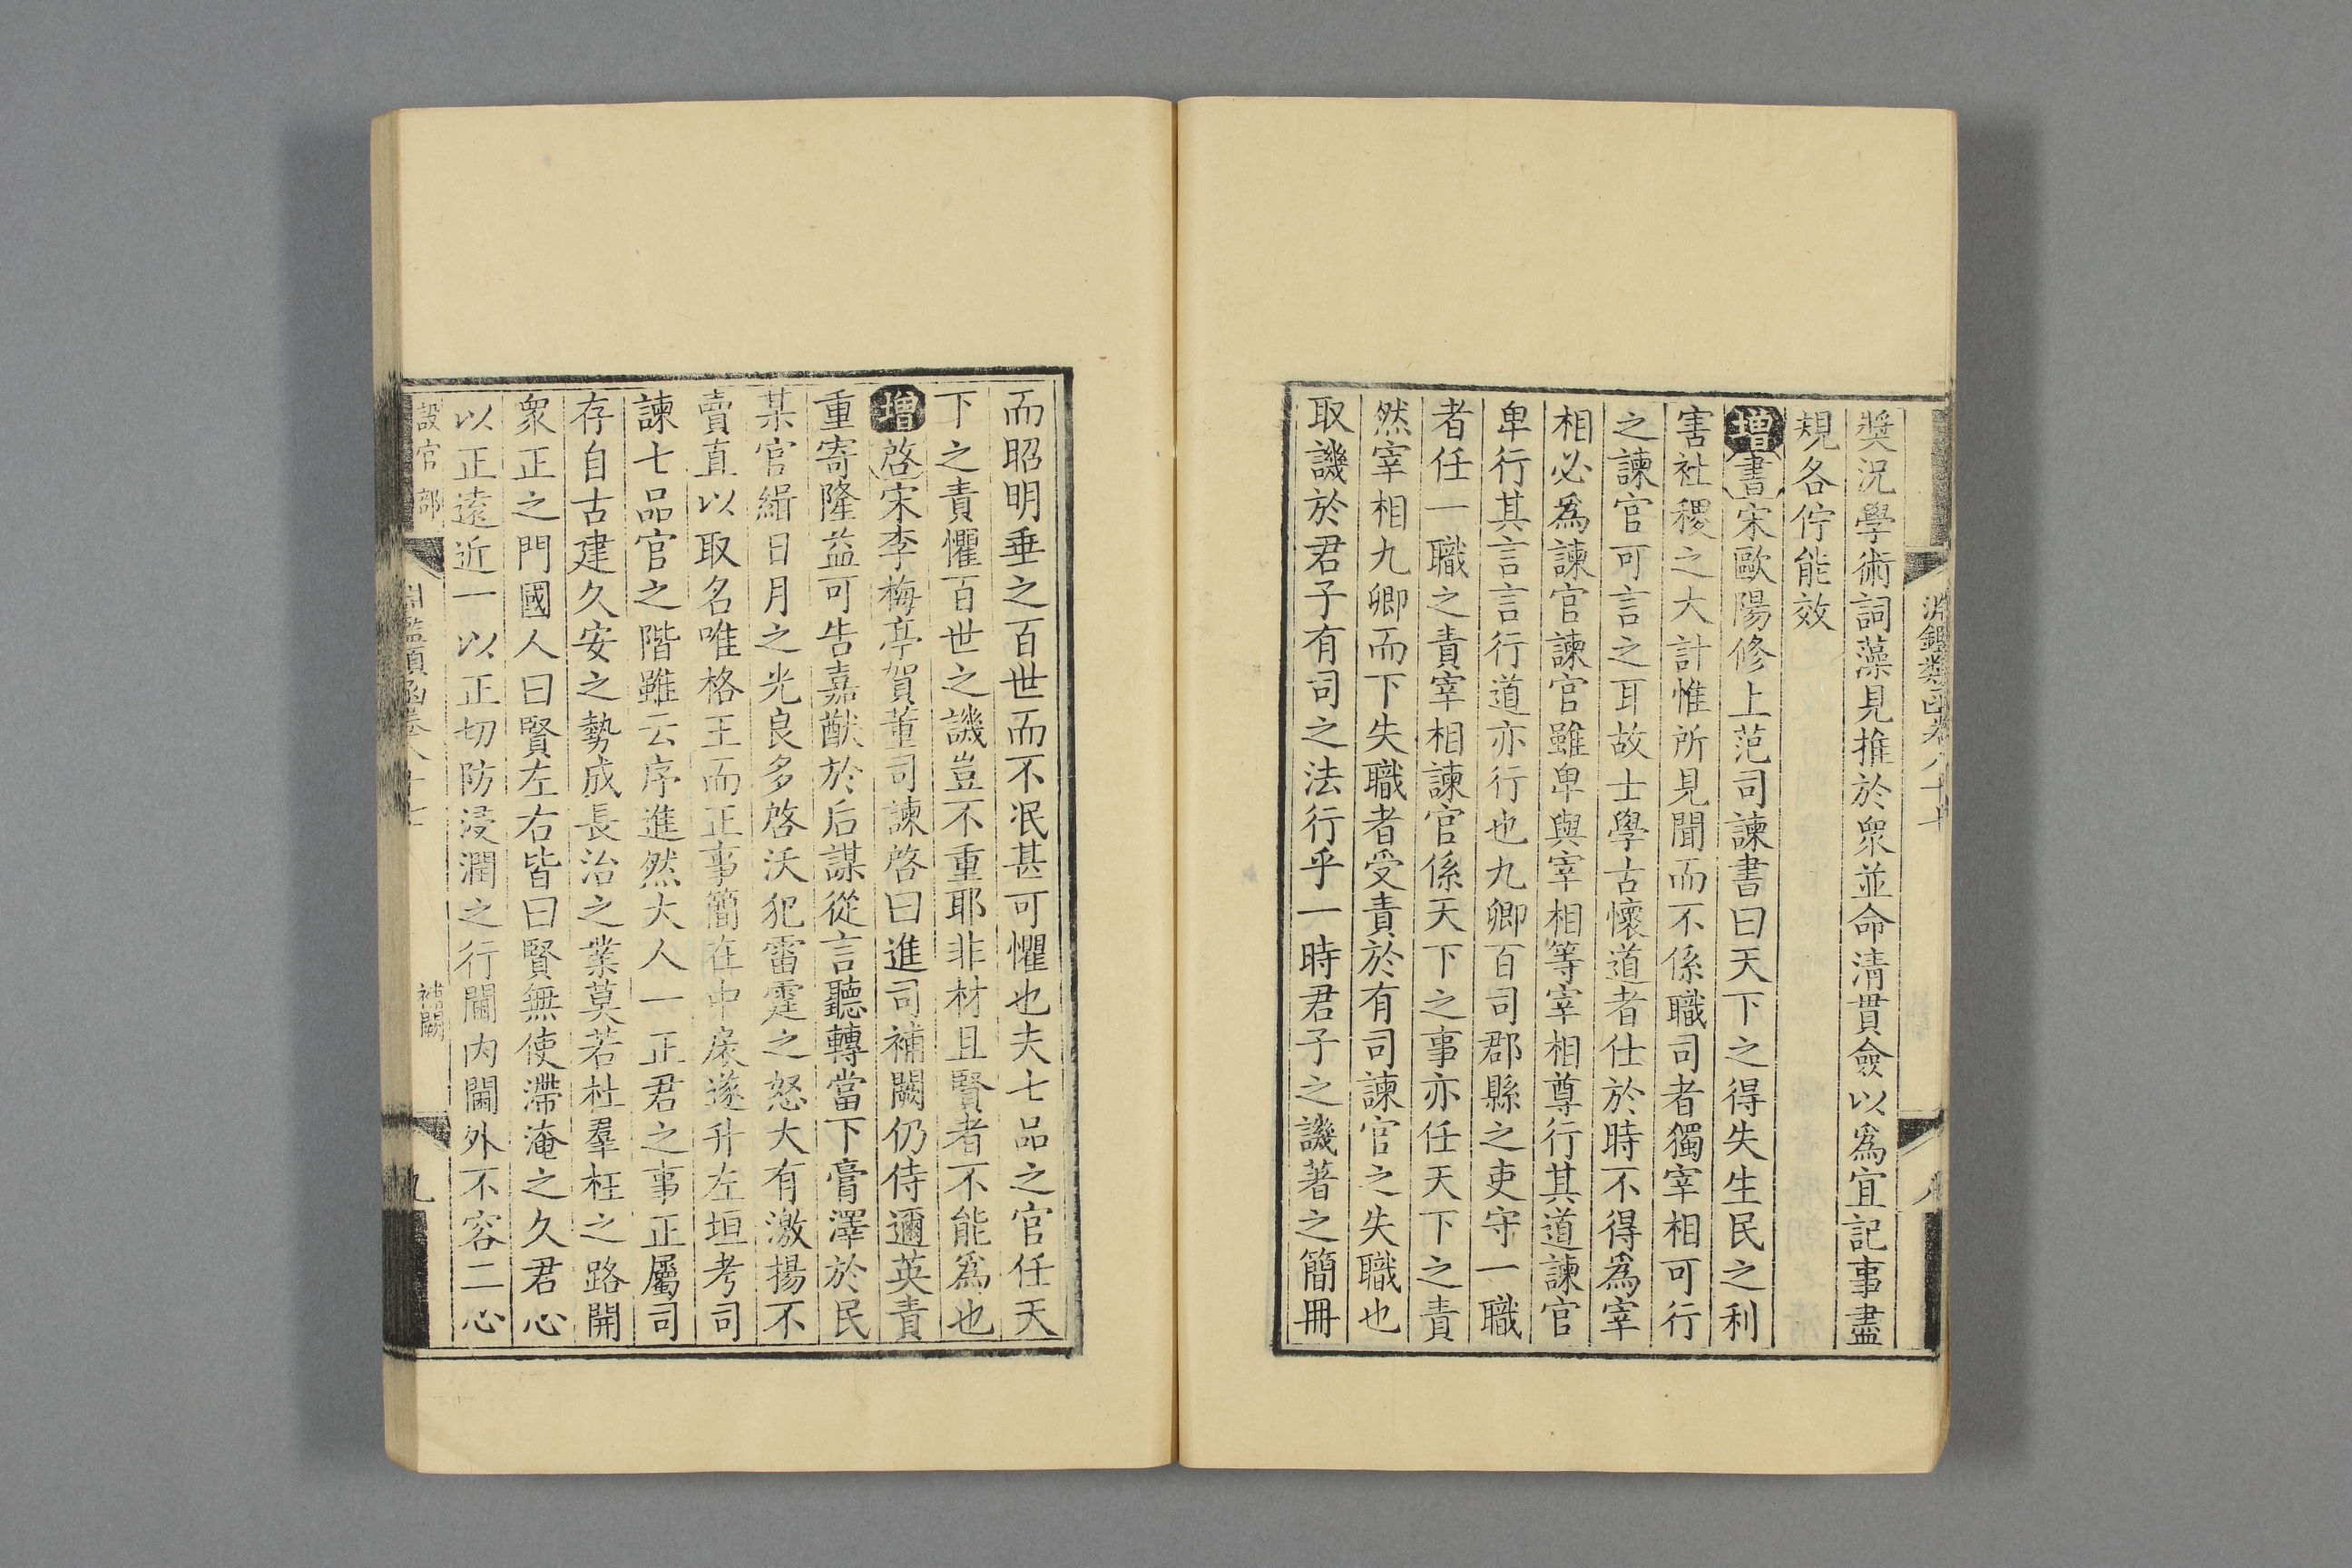 淵鑑類函卷八十七
八
奬況學術詞藻見推於衆並命清貫僉以爲宜記事盡
規各佇能效
增書宋歐陽修上范司諫書曰天下之得失生民之利
害社稷之大計惟所見聞而不係職司者獨宰相可行
之諫官可言之耳故士學古懷道者仕於時不得爲宰
相必爲諫官諫官雖卑與宰相等宰相尊行其道諫官
卑行其言言行道亦行也九卿百司郡縣之吏守一職
者任一職之責宰相諫官係天下之事亦任天下之責
然宰相九卿而下失職者受責於有司諫官之失職也
取譏於君子有司之法行乎一時君子之譏著之簡冊
而昭明垂之百世而不泯甚可懼也夫七品之官任天
下之責懼百世之譏豈不重耶非材且賢者不能爲也
增啓宋李梅亭賀董司諫啓曰進司補闕仍侍邇英責
重寄隆益可告嘉猷於后謀從言聽轉當下膏澤於民
某官緝日月之光良多啓沃犯雷霆之怒大有激揚不
賣直以取名唯格王而正事簡在中宸遂升左垣考司
諫七品官之階雖云序進然大人一正君之事正屬司
存自古建久安之勢成長治之業莫若杜羣枉之路開
衆正之門國人曰賢左右皆曰賢無使滯淹之久君心
以正遠近一以正切防浸潤之行閫内閫外不容二心
設官部
淵鑑類函卷八十七
補闕
九